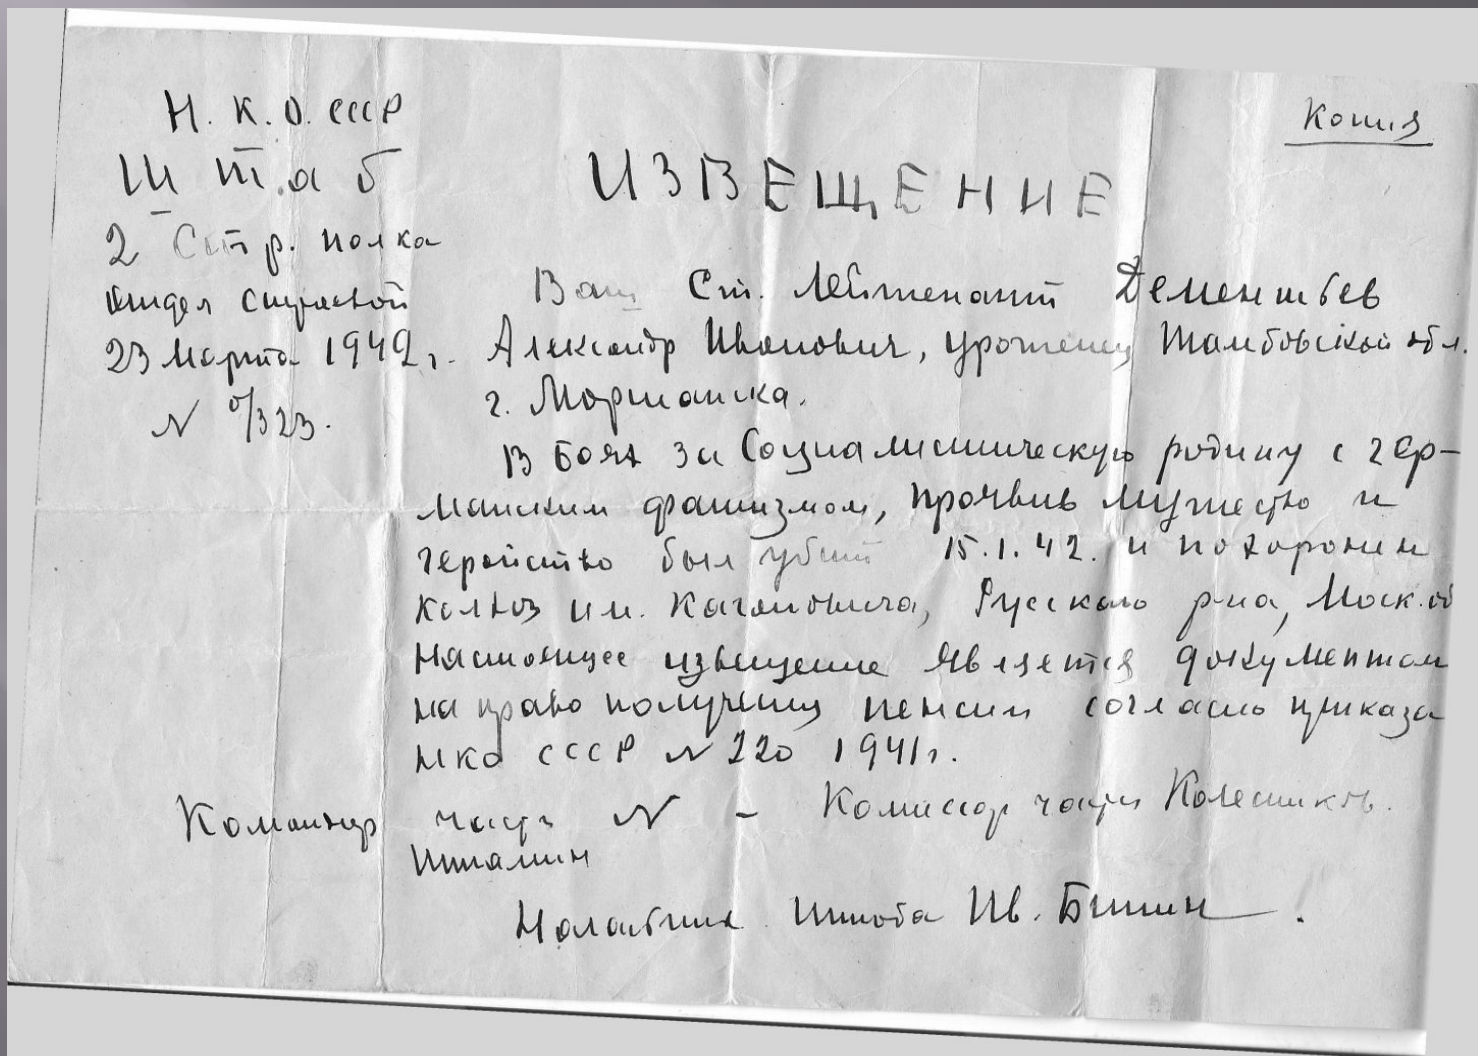 Н. К. О. СССР
Штаб
2 Стр. полка
отдел строевой
23 марта 1942 г.
N 0/323.
Копия
ИЗВЕЩЕНИЕ
Ваш Ст. Лейтенант Дементьев
Александр Иванович, уроженец Тамбовской обл.
г. Моршанска.
В боях за Социалистическую родину с гер-
манским фашизмом, проявив мужество и
геройство был убит 15.1.42. и похоронен
колхоз им. Кагановича, Русского р-на, Моск. об
Настоящее извещение является документом
на право получения пенсии согласно приказа
НКО СССР N 220 1941 г.
Командир части N - Комиссар части Колесников.
Шталин
Начальник Штаба Ив.